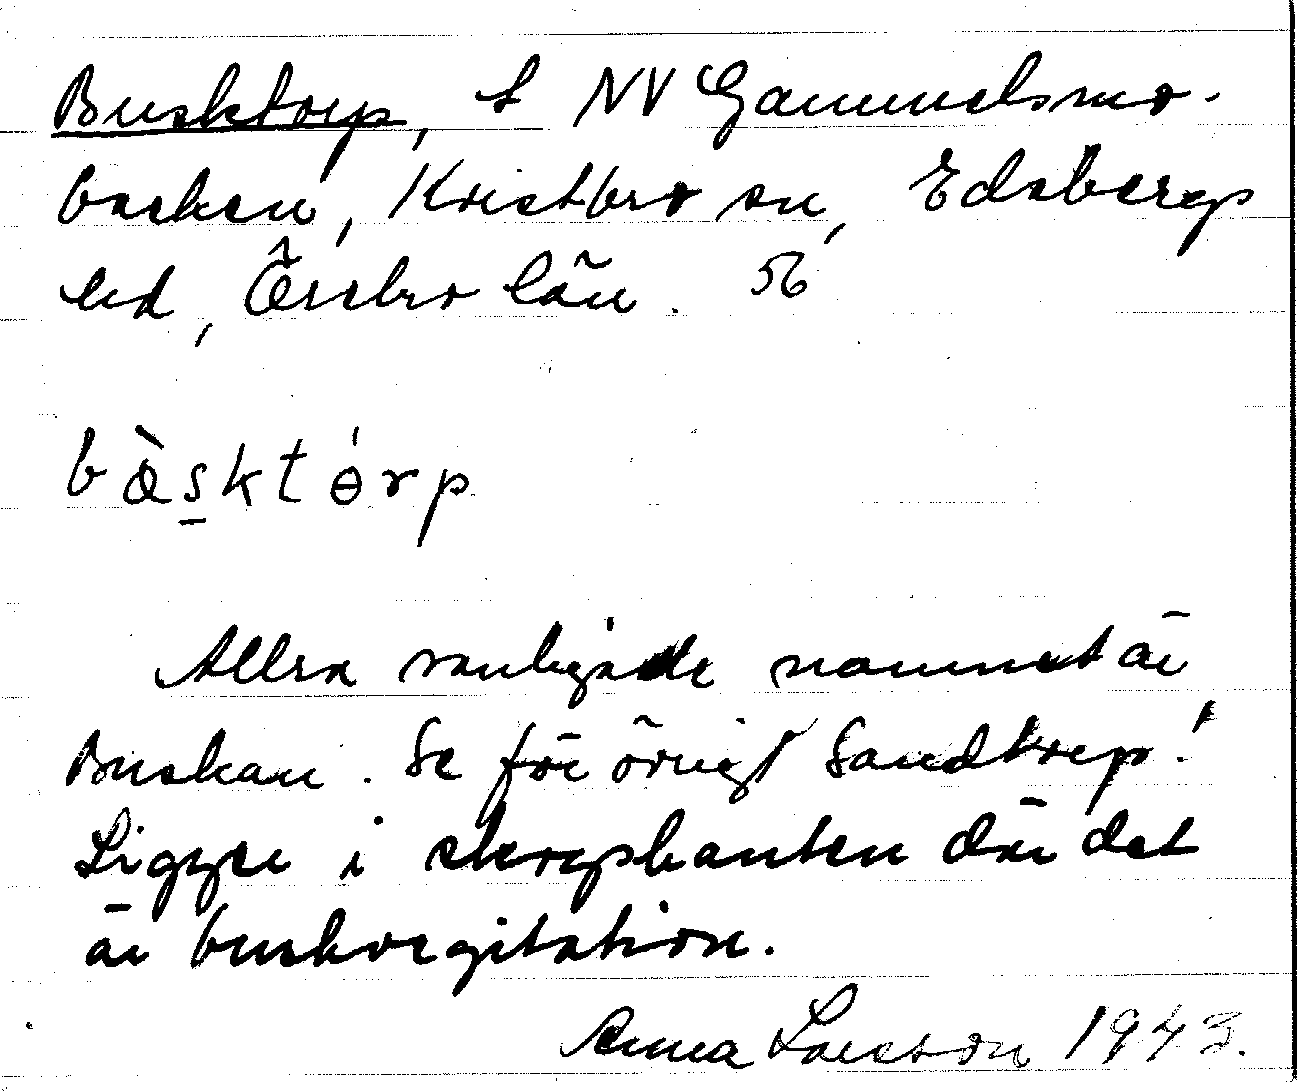 Busktorp, t NV Gammelsmo-
backen, Knistbro sn, Edsbergs
hd, Örebro län. 56
bàsktɵ́rp
Allra vanligaste namnet är
Buskan. Se för övrigt Sandtorp!
Ligger i skogskanten där det
är buskvegitation.
Anna Larsson 1943.